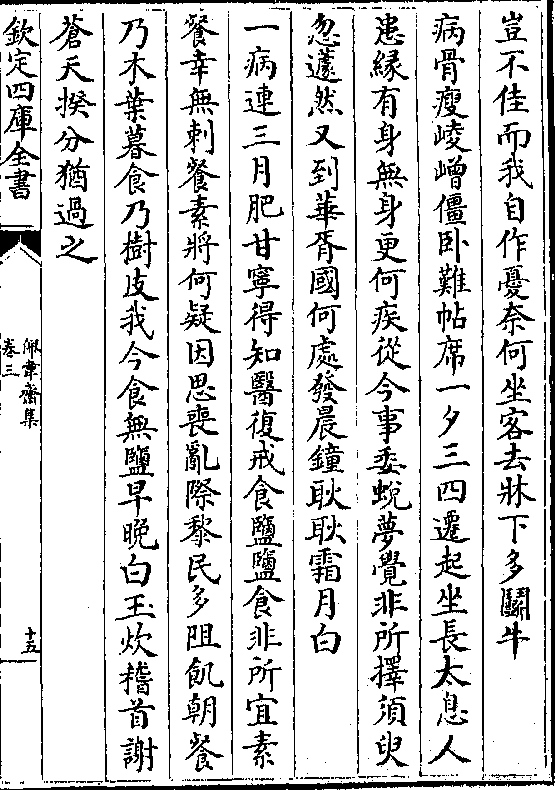 豈不佳而我自作憂奈何坐客去牀下多鬭牛
病骨瘦崚嶒僵卧難帖席一夕三四遷起坐長太息人
患縁有身無身更何疾從今事委蛻夢覺非所擇須臾
忽蘧然又到華胥國何處發晨鐘耿耿霜月白
一病連三月肥甘寧得知醫復戒食鹽鹽食非所宜素
餐幸無刺餐素將何疑因思喪亂際黎民多阻飢朝餐
乃木葉暮食乃樹皮我今食無鹽早晚白玉炊稽首謝
蒼天揆分猶過之
欽定四庫全書
佩韋齋集
卷三
十五